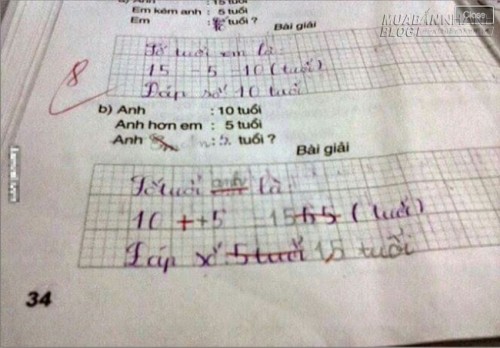 a) Anh : 15 tuổi
Em kém anh : 5 tuổi
Em : tuổi ?
Bài giải
Số tuổi em là:
15 - 5 = 10 (tuổi)
Đáp số 10 tuổi
8
b) Anh : 10 tuổi
Anh hơn em : 5 tuổi
Anh : tuổi ?
Bài giải
Số tuổi anh là:
10 + +5 = 15 (tuổi)
Đáp số 5 tuổi 15 tuổi
34
MUABANNHANH
BLOG